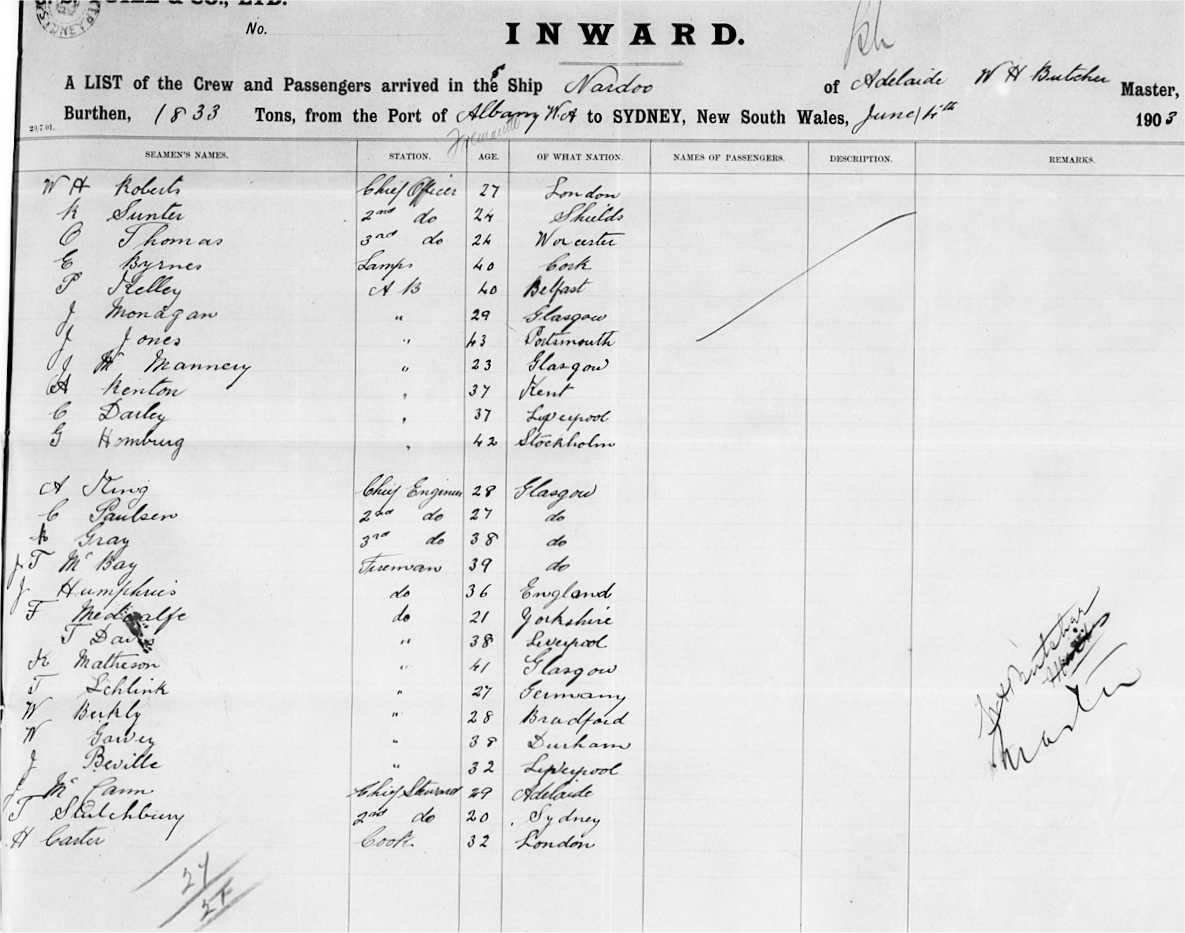 & CO., LTD.
SYDNEY
No.
INWARD.
A LIST of the Crew and Passengers arrived in the Ship Nardoo of Adelaide W H Butcher Master,
Burthen, 1833 Tons, from the Port of Albany W.A to SYDNEY, New South Wales, June 4th 1903
Fremantle
20.7.01.
SEAMEN'S NAMES. STATION. AGE. OF WHAT NATION. NAMES OF PASSENGERS. DESCRIPTION. REMARKS.
W H Roberts Chief Officer 27 London
R Sunter 2nd do 24 Shields
O Thomas 3rd do 24 Worcester
E Byrnes Lamps 40 Cork
P Kelley A B 40 Belfast
J Monagan " 29 Glasgow
J Jones " 43 Portsmouth
J Mc Mannery " 23 Glasgow
A Kenton " 37 Kent
C Darley " 37 Liverpool
G Homburg " 42 Stockholm
A King Chief Engineer 28 Glasgow
C Paulsen 2nd do 27 do
R Gray 3rd do 38 do
J T Mc Bay Fireman 39 do
J Humphries do 36 England
F Medcalfe do 21 Yorkshire
T Davis " 38 Liverpool
K Matheson " 41 Glasgow
T Schlink " 27 Germany
W Berkly " 28 Bradford
W Garvey " 38 Durham
J Beville " 32 Liverpool
J Mc Cann Chief Steward 29 Adelaide
T Stutchbury 2nd do 20 Sydney
H Carter Cook. 32 London
Master
27